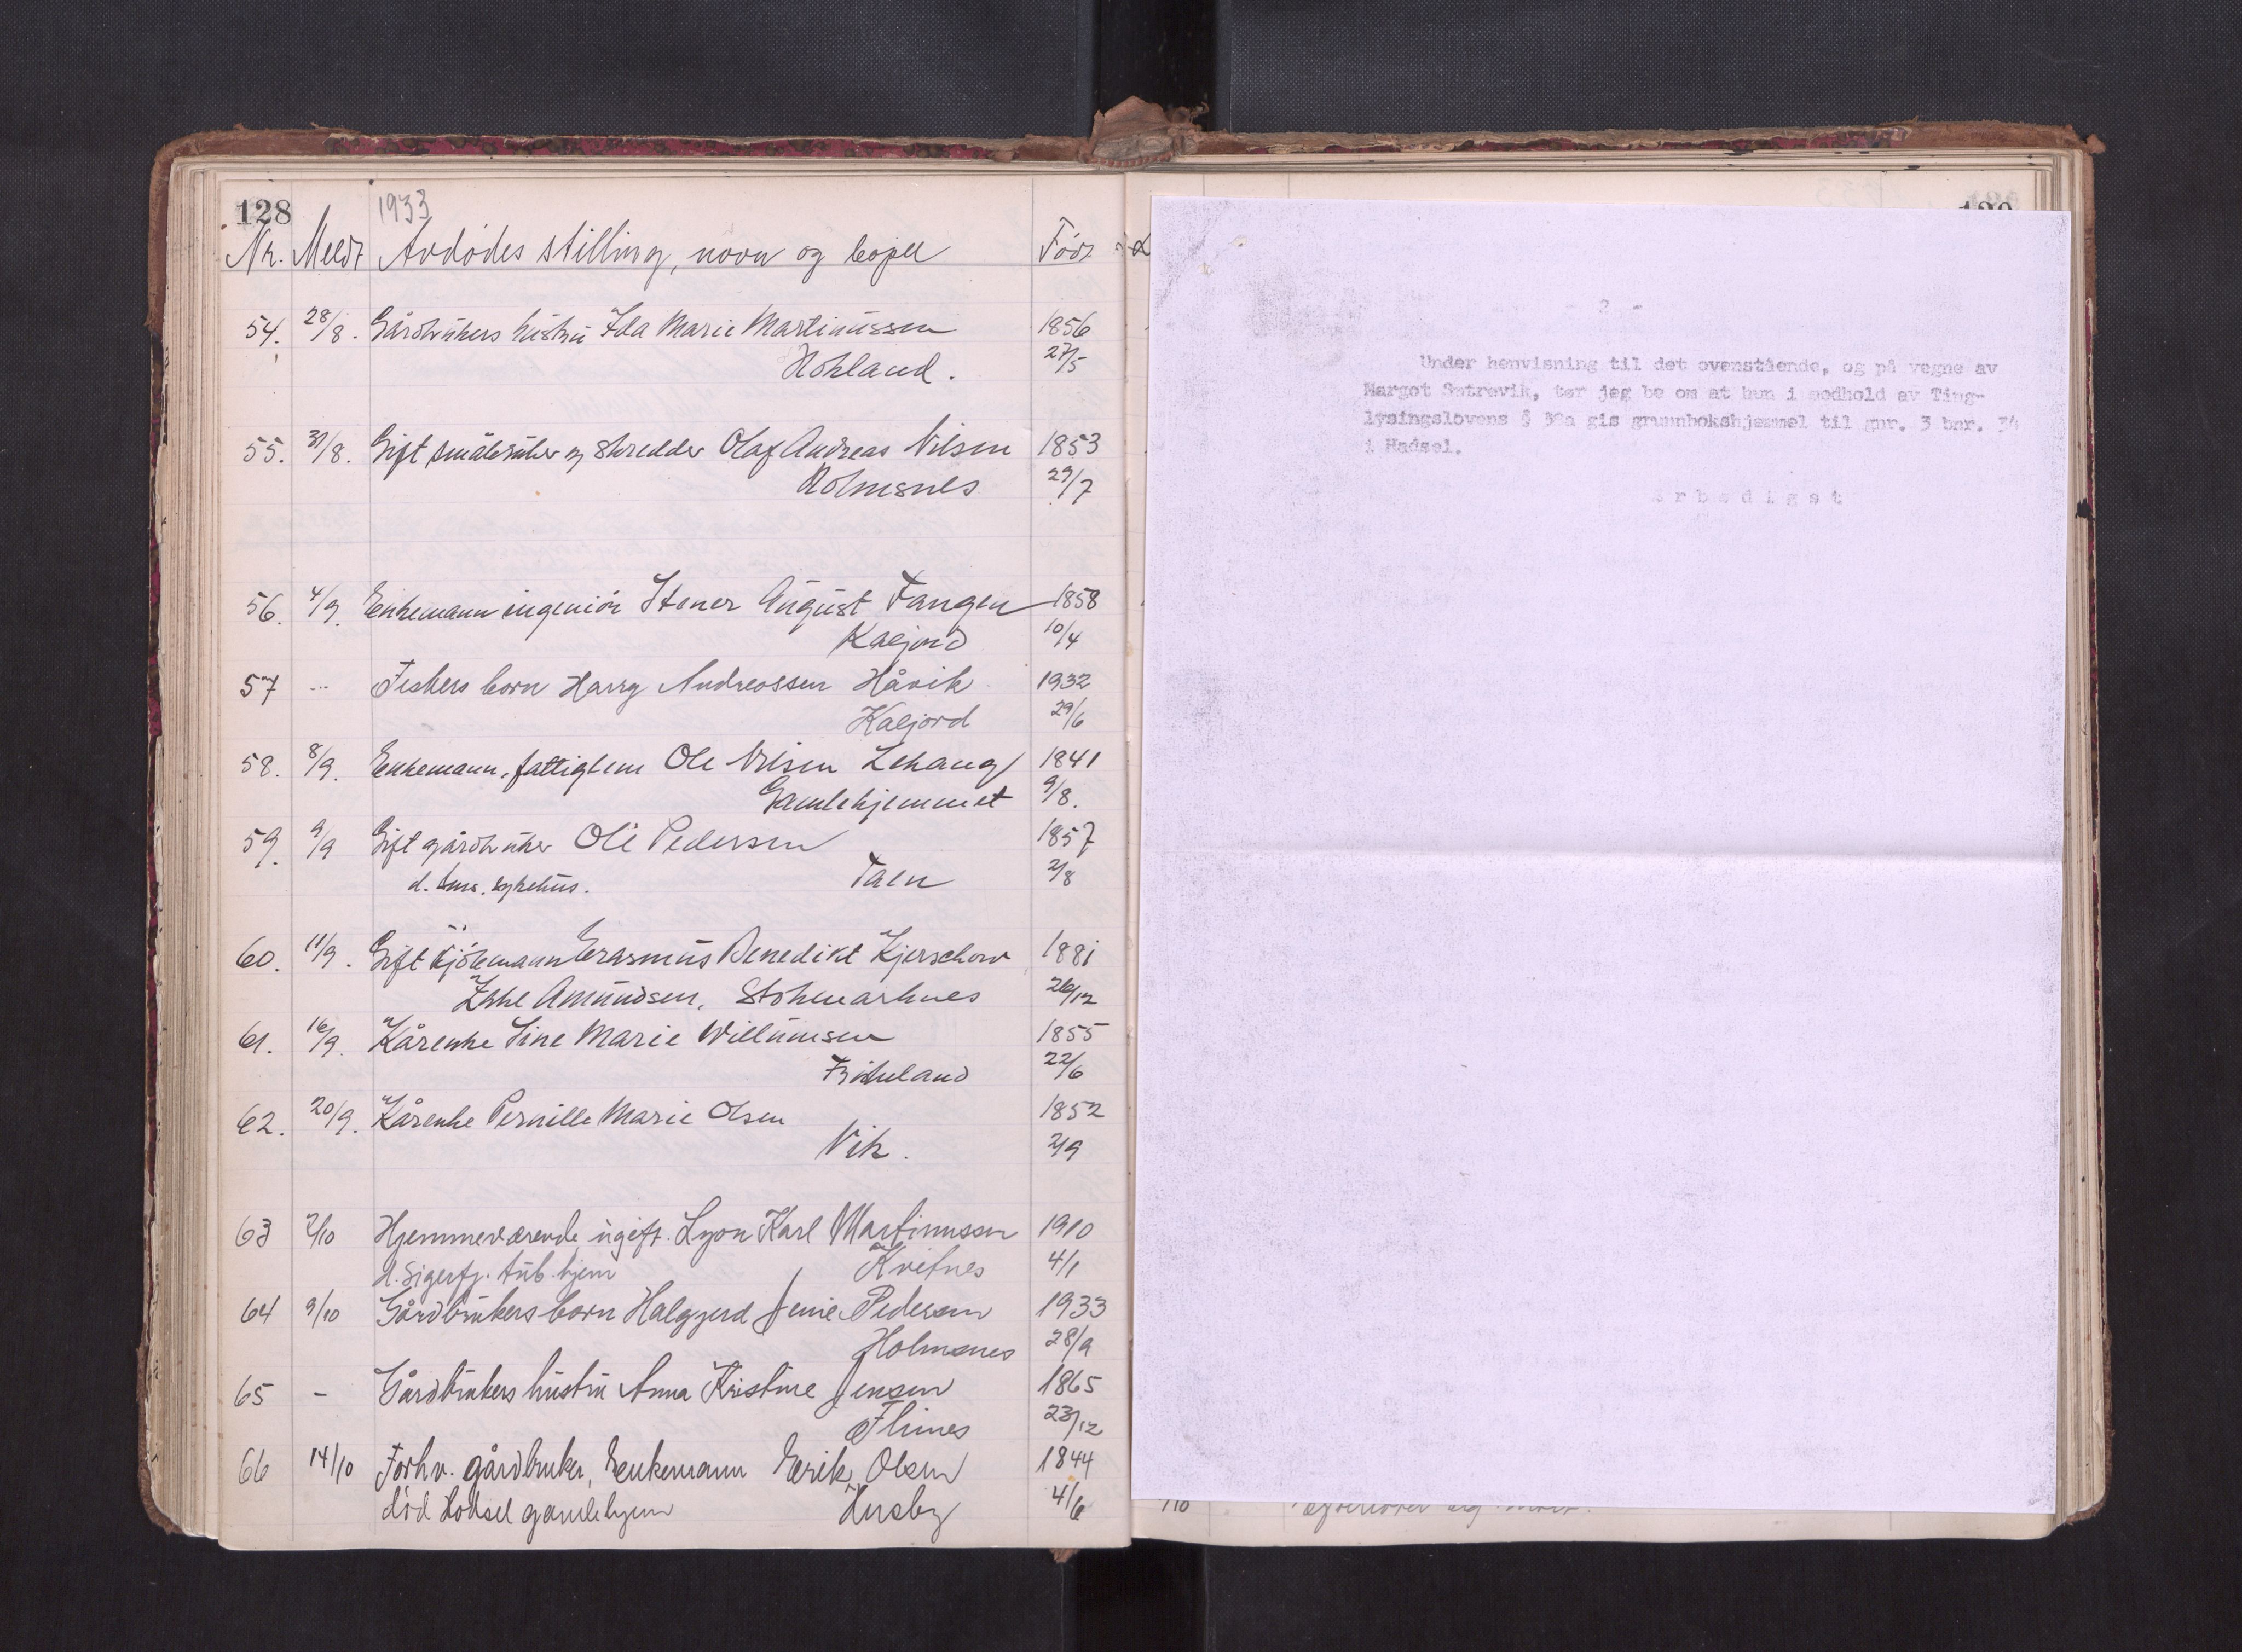 128 1933
Nr. Meldt Avdødes stilling, navn og bopel Født
54. 28/8. Gårdbrukers hustru Ida Marie Martinussen 1856
Hokland. 27/5
55. 31/8. Gift småbruker og skredder Olaf Andreas Nilsen 1853
Holmsnes 29/7
56. 4/9. Enkemann ingeniør Stener August Fangen 1858
Kaljord 10/4
57 Fiskers barn Harry Andreassen Håvik 1932
Kaljord 29/6
58. 8/9. Enkemann, fattiglem Ole Nilsen Lekang 1841
Gamlehjemmet 9/8.
59. 9/9 Gift gårdbruker Ole Pedersen 1857
d. sykehus. Taen 2/8
60. 11/9. Gift Erasmus Benedikt Kjerschow 1881
Zahl Amundsen, Stokmarknes 26/12
61. 16/9. Kårenke Sine Marie Willumsen 1855
22/6
62. 20/9. Kårenke Pernille Marie Olsen 1852
Vik. 2/9
63 2/10 Hjemmeværende ugift. Lyon Karl Martinussen 1910
d. Sigerfj. tub. hjem Kvitnes 4/1
64 9/10 Gårdbrukers barn Halgjerd Jenie Pedersen 1933
Holmsnes 28/9
65 - Gårdbrukers hustru Anna Kristine Jensen 1865
Flines 23/12
66 14/10 Forhv. gårdbruker, Enkemann Erik Olsen 1844
død Hadsel gamlehjem Husby 4/6
2 -
Under henvisning til det ovenstående, og på vegne av
Margot Sætrevik, tør jeg be om at hun i medhold av Ting-
lysingslovens § 38a gis grunnbokshjemmel til gnr. 3 bnr. 34
i Hadsel.
ærbødigst